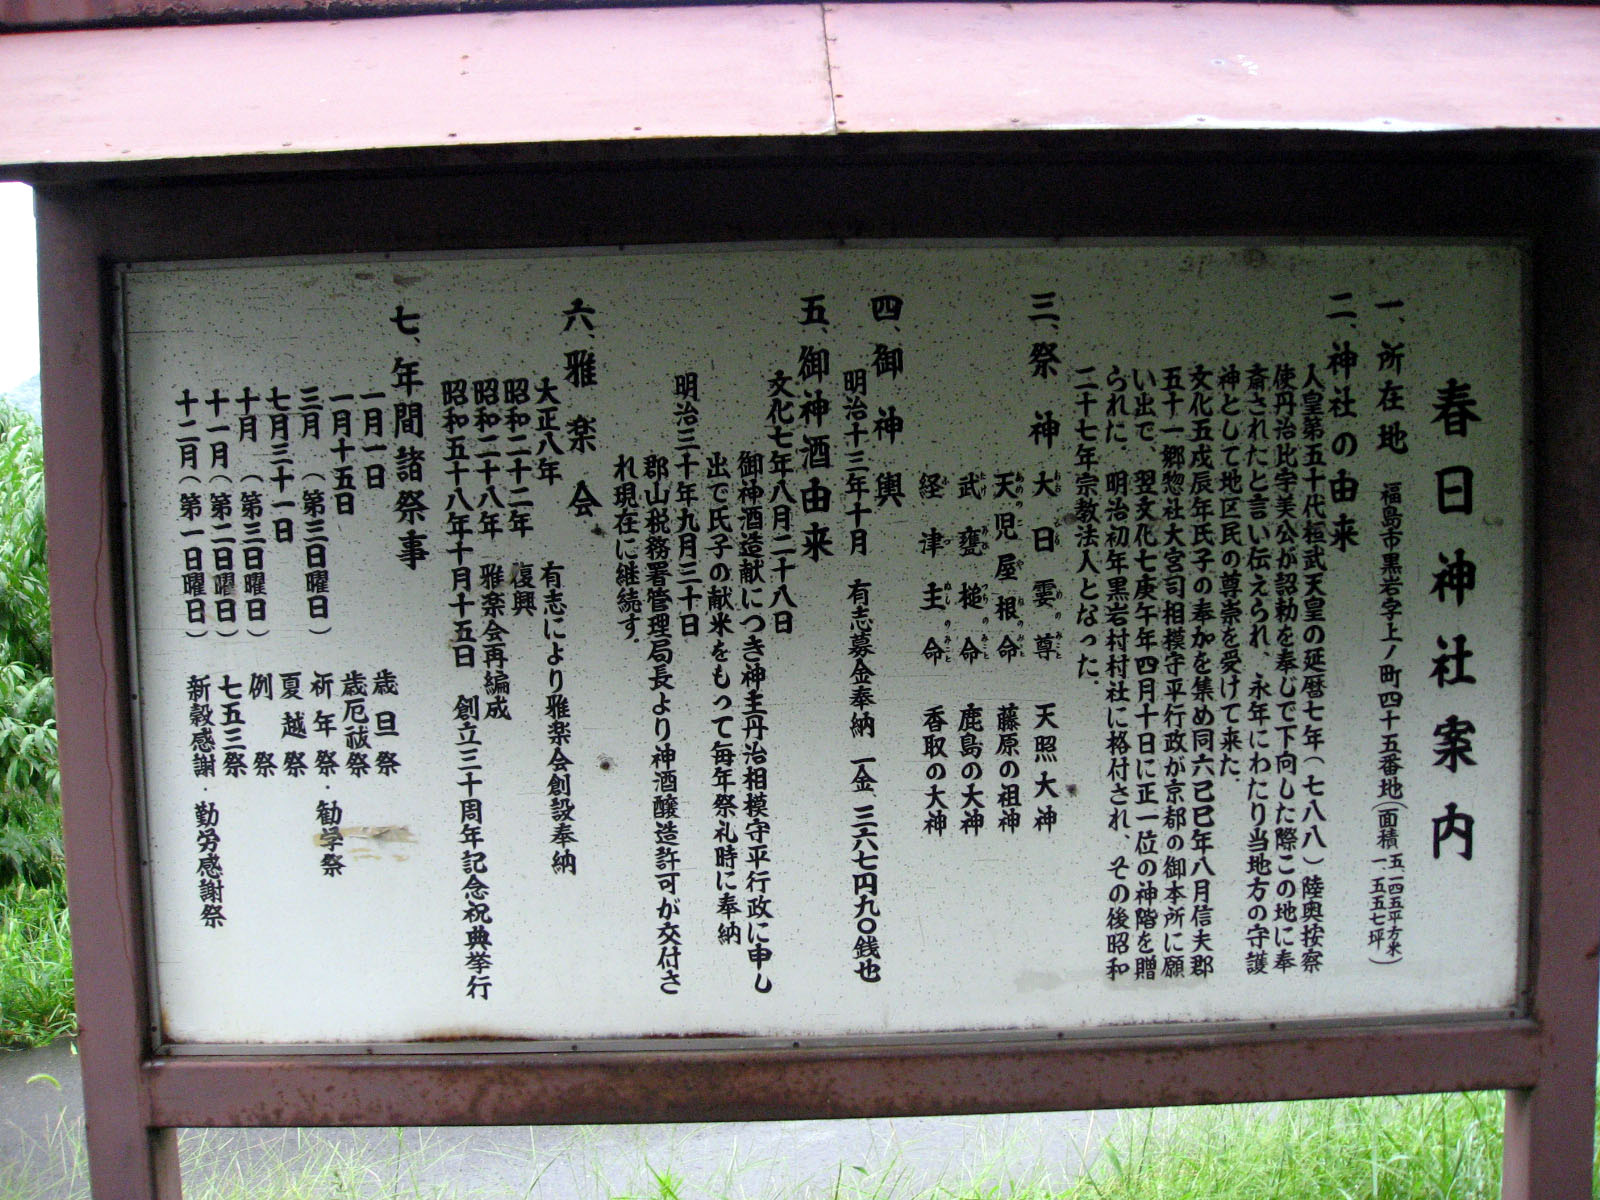 春日神社案内
一、所在地　福島市黒岩字上ノ町四十五番地(面積 五、一四五平方米 一、五五七坪)
二、神社の由来
人皇第五十代桓武天皇の延暦七年(七八八)陸奥按察
使丹治比宇美公が詔勅を奉じて下向した際この地に奉
斎されたと言い伝えられ、永年にわたり当地方の守護
神として地区民の尊崇を受けて来た。
文化五戊辰年氏子の奉加を集め同六己巳年八月信夫郡
五十一郷惣社大宮司相模守平行政が京都の御本所に願
い出で、翌文化七庚午年四月十日に正一位の神階を贈
られた。明治初年黒岩村村社に格付され、その後昭和
二十七年宗教法人となった。
三、祭神　大日孁の尊　天照大神
天児屋根命　藤原の祖神
武甕槌命　鹿島の大神
経津主命　香取の大神
四、御神輿
明治十三年十月　有志募金奉納　一金、三六七円九〇銭也
五、御神酒由来
文化七年八月二十八日
御神酒造献につき神主丹治相模守平行政に申し
出で氏子の献米をもって毎年祭礼時に奉納
明治三十年九月三十日
郡山税務署管理局長より神酒醸造許可が交付さ
れ現在に継続す。
六、雅楽会
大正八年　有志により雅楽会創設奉納
昭和二十二年　復興
昭和二十八年　雅楽会再編成
昭和五十八年十月十五日　創立三十周年記念祝典挙行
七、年間諸祭事
一月一日　歳旦祭
一月十五日　歳厄祓祭
三月　(第三日曜日)　祈年祭・勧学祭
七月三十一日　夏越祭
十月　(第三日曜日)　例祭
十一月(第二日曜日)　七五三祭
十二月(第一日曜日)　新穀感謝・勤労感謝祭